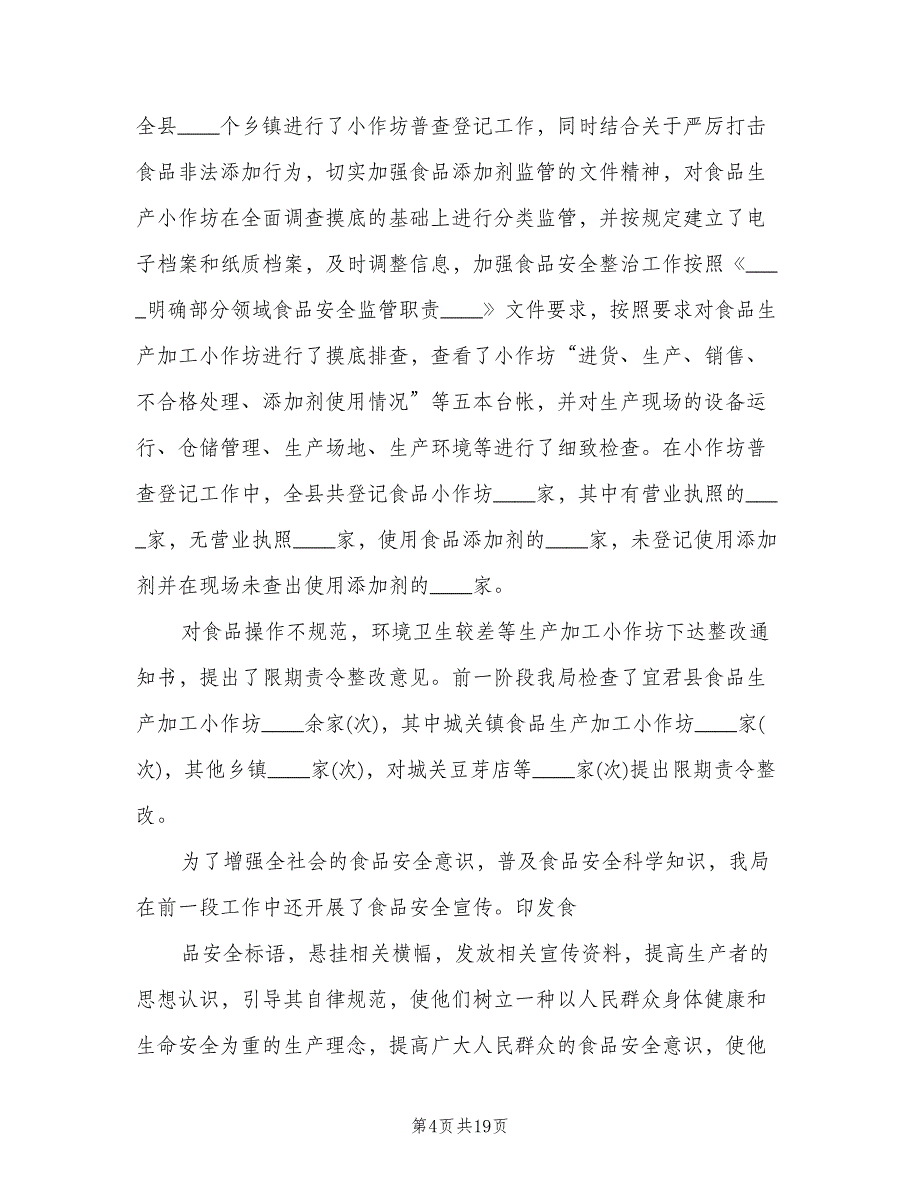 全县____个乡镇进行了小作坊普查登记工作，同时结合关于严厉打击
食品非法添加行为，切实加强食品添加剂监管的文件精神，对食品生
产小作坊在全面调查摸底的基础上进行分类监管，并按规定建立了电
子档案和纸质档案，及时调整信息，加强食品安全整治工作按照《___
_明确部分领域食品安全监管职责____》文件要求，按照要求对食品生
产加工小作坊进行了摸底排查，查看了小作坊“进货、生产、销售、
不合格处理、添加剂使用情况”等五本台帐，并对生产现场的设备运
行、仓储管理、生产场地、生产环境等进行了细致检查。在小作坊普
查登记工作中，全县共登记食品小作坊____家，其中有营业执照的___
_家，无营业执照____家，使用食品添加剂的____家，未登记使用添加
剂并在现场未查出使用添加剂的____家。
对食品操作不规范，环境卫生较差等生产加工小作坊下达整改通
知书，提出了限期责令整改意见。前一阶段我局检查了宜君县食品生
产加工小作坊____余家(次)，其中城关镇食品生产加工小作坊____家(
次)，其他乡镇____家(次)，对城关豆芽店等____家(次)提出限期责令整
改。
为了增强全社会的食品安全意识，普及食品安全科学知识，我局
在前一段工作中还开展了食品安全宣传。印发食
品安全标语，悬挂相关横幅，发放相关宣传资料，提高生产者的
思想认识，引导其自律规范，使他们树立一种以人民群众身体健康和
生命安全为重的生产理念，提高广大人民群众的食品安全意识，使他
第4页共19页